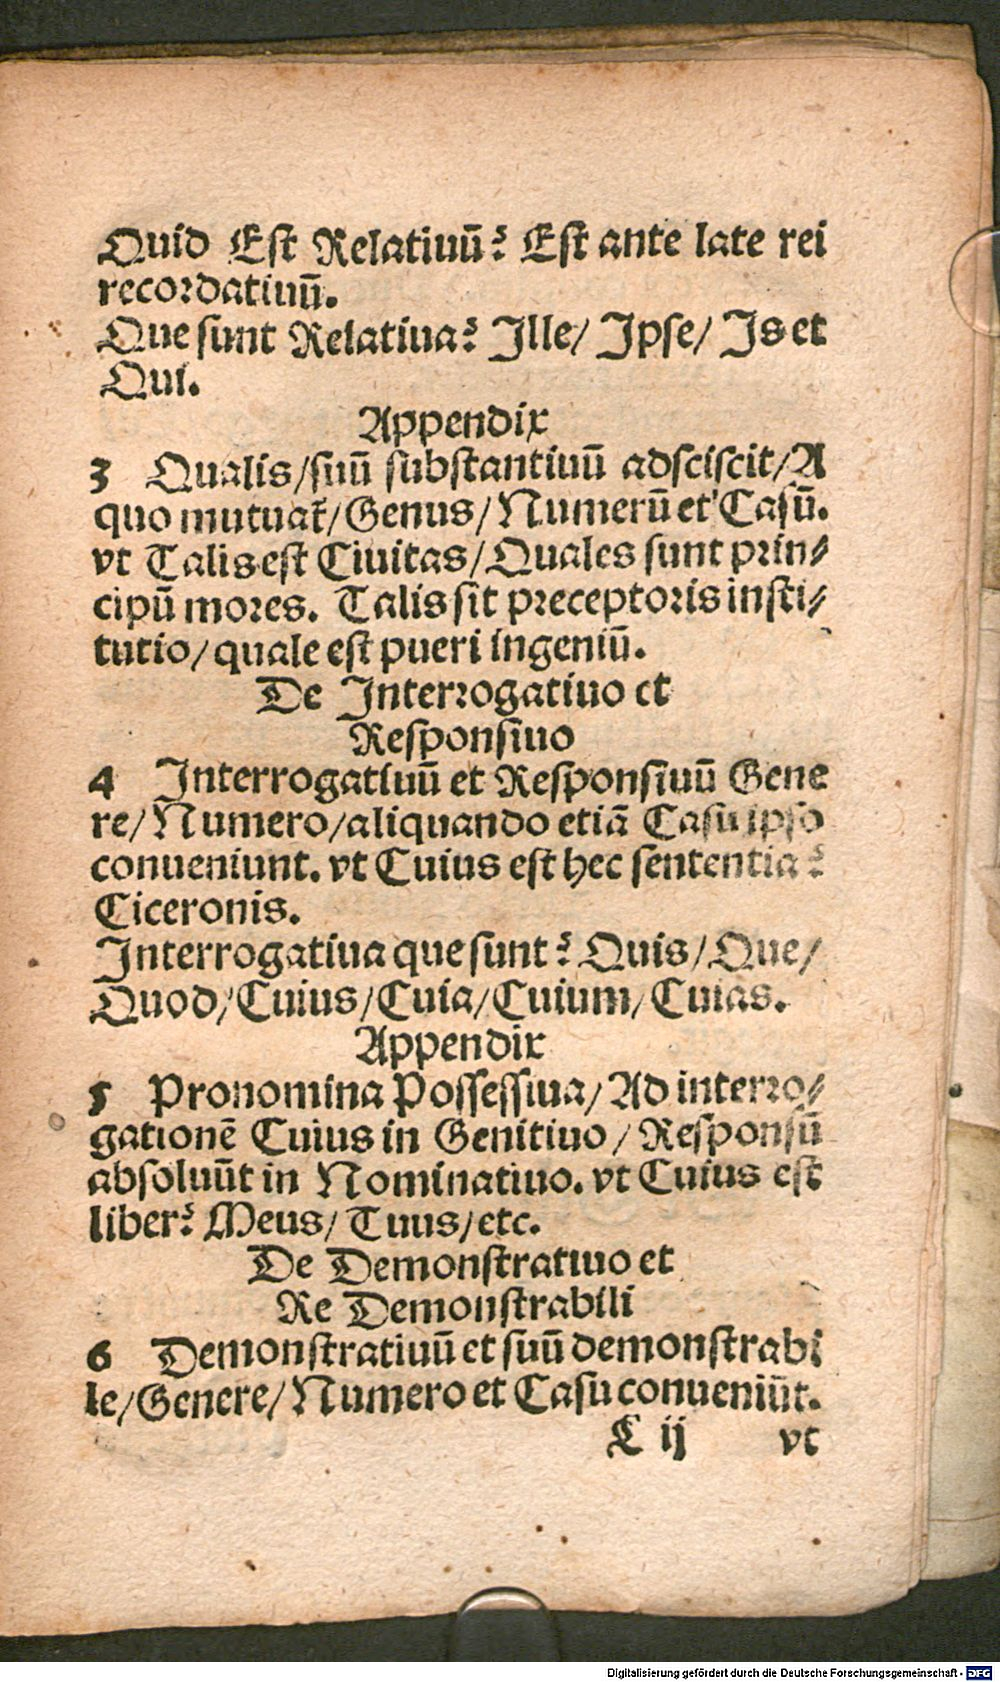 Quid Est Relatiuū? Est ante late rei
recordatiuū.
Que sunt Relatiua? Ille/ Ipse/ Is et
Qui.
Appendix
3 Qualis/suū substantiuū adsciscit/A
quo mutuat᷑/Genus/Numerū et Casū.
vt Talis est Ciuitas/Quales sunt prin⸗
cipū mores. Talis sit preceptoris insti⸗
tutio/quale est pueri ingeniū.
De Interrogatiuo et
Responsiuo
4 Interrogatiuū et Responsiuū Gene
re/Numero/aliquando etiā Casu ipso
conueniunt. vt Cuius est hec sententia?
Ciceronis.
Interrogatiua que sunt? Quis/Que/
Quod/Cuius/Cuia/Cuium/Cuias.
Appendix
5 Pronomina Possessiua/Ad interro⸗
gationē Cuius in Genitiuo/Responsū
absoluūt in Nominatiuo. vt Cuius est
liber? Meus/Tuus/etc.
De Demonstratiuo et
Re Demonstrabili
6 Demonstratiuū et suū demonstrabi
le/Genere/Numero et Casu conueniūt.
C ij vt
Digitalisierung gefördert durch die Deutsche Forschungsgemeinschaft - DFG